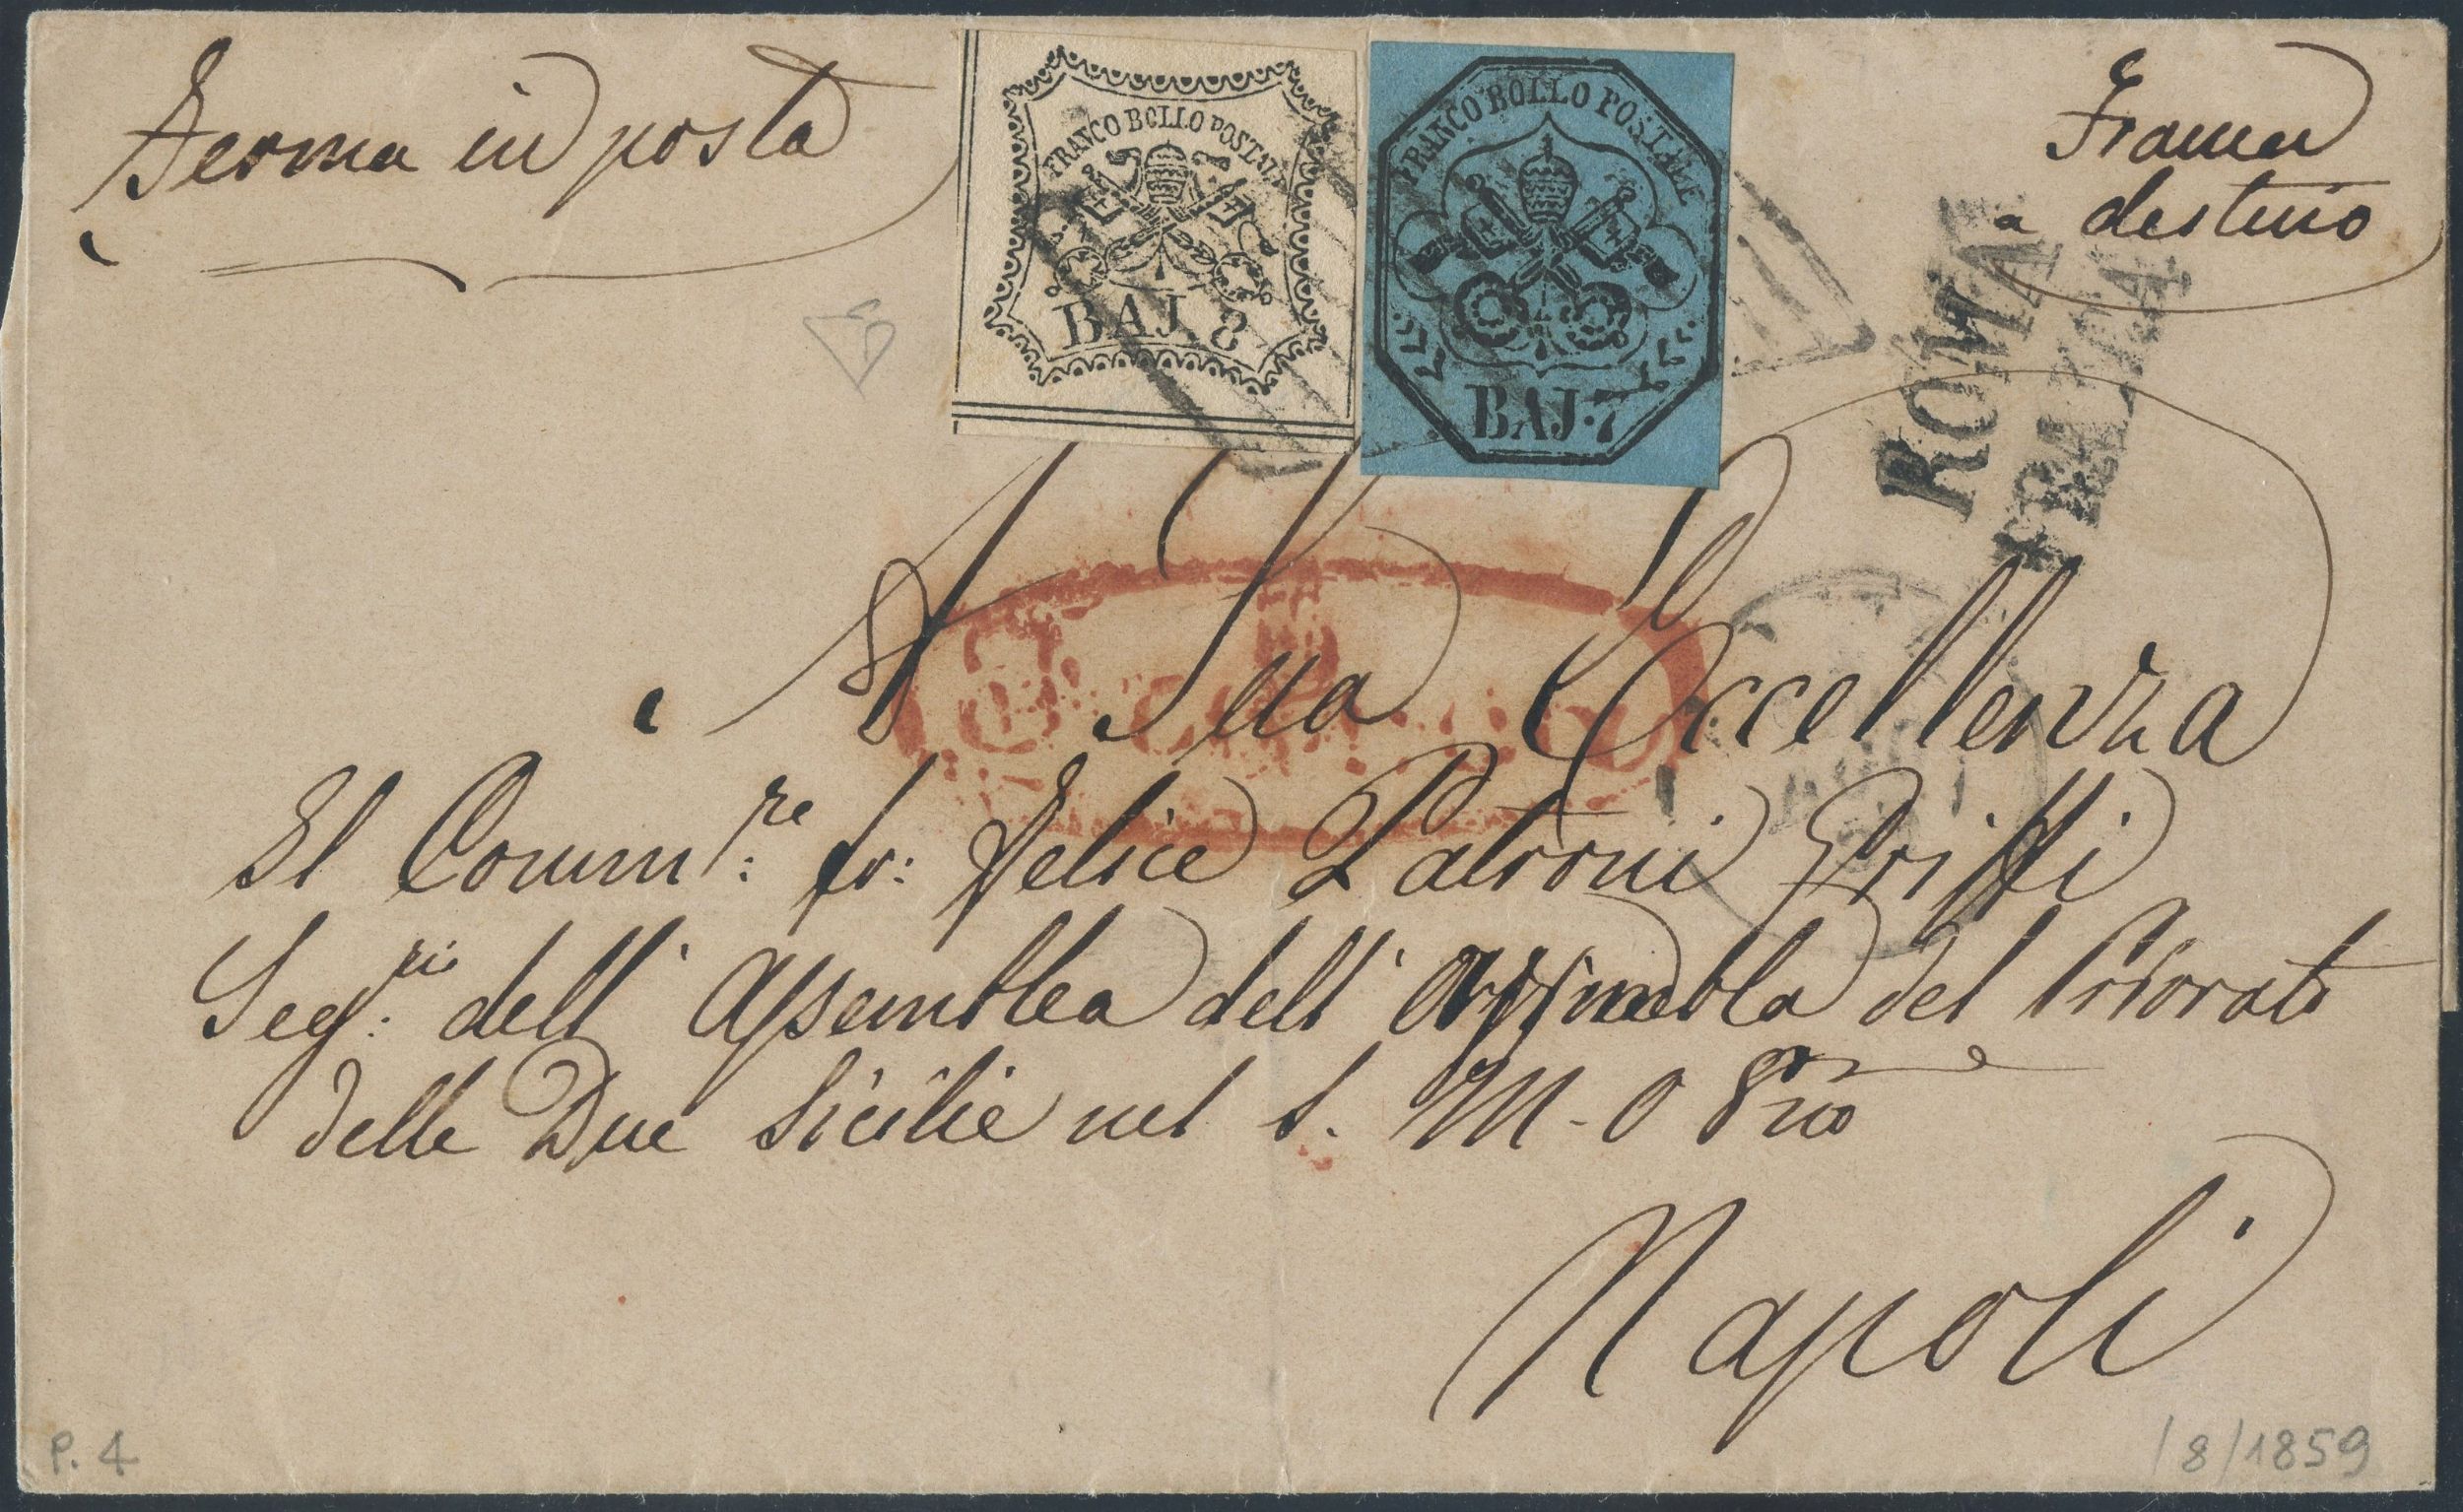 Ferma in posta
FRANCO BOLLO POSTALE
BAJ 8
FRANCO BOLLO POSTALE
BAJ. 7
Franca
a destino
ROMA
A Sua Eccellenza
Il Comm.re fr: Felice Patroni Griffi
Seg.rio dell' Assemblea dell' del Priorato
delle Due Sicilie nel S. M. O
Napoli
P. 4
/8/1859